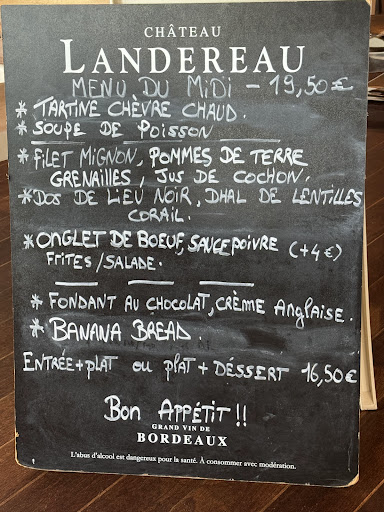 CHÂTEAU
LANDEREAU
MENU DU MIDI - 19,50€
* TARTINE CHÈVRE CHAUD.
* SOUPE DE POISSON
* FILET MIGNON, POMMES DE TERRE
GRENAILLES, JUS DE COCHON.
* DOS DE LIEU NOIR, DHAL DE LENTILLES
CORAIL.
* ONGLET DE BOEUF, SAUCE POIVRE (+4€)
FRITES/SALADE.
* FONDANT AU CHOCOLAT, CRÈME ANGLAISE.
* BANANA BREAD.
ENTRÉE+PLAT OU PLAT+DÉSSERT 16,50€
BON APPÉTIT!!
GRAND VIN DE
BORDEAUX
L'abus d'alcool est dangereux pour la santé. À consommer avec modération.